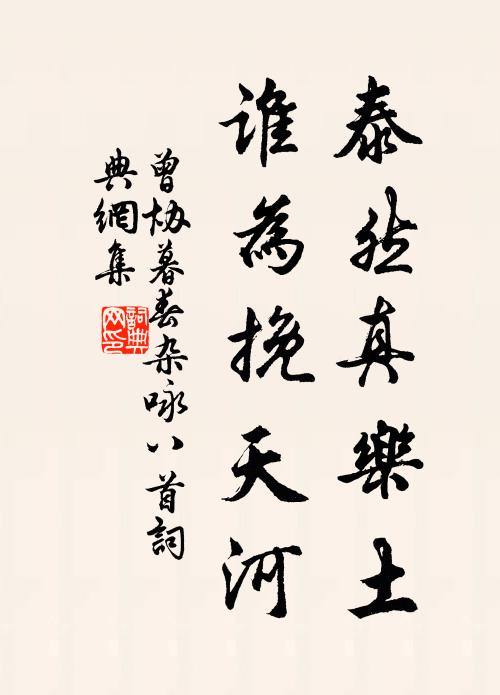 泰然真樂土
誰為挽天河
曾協暮春杂咏八首詞
典網集
詞典
网印